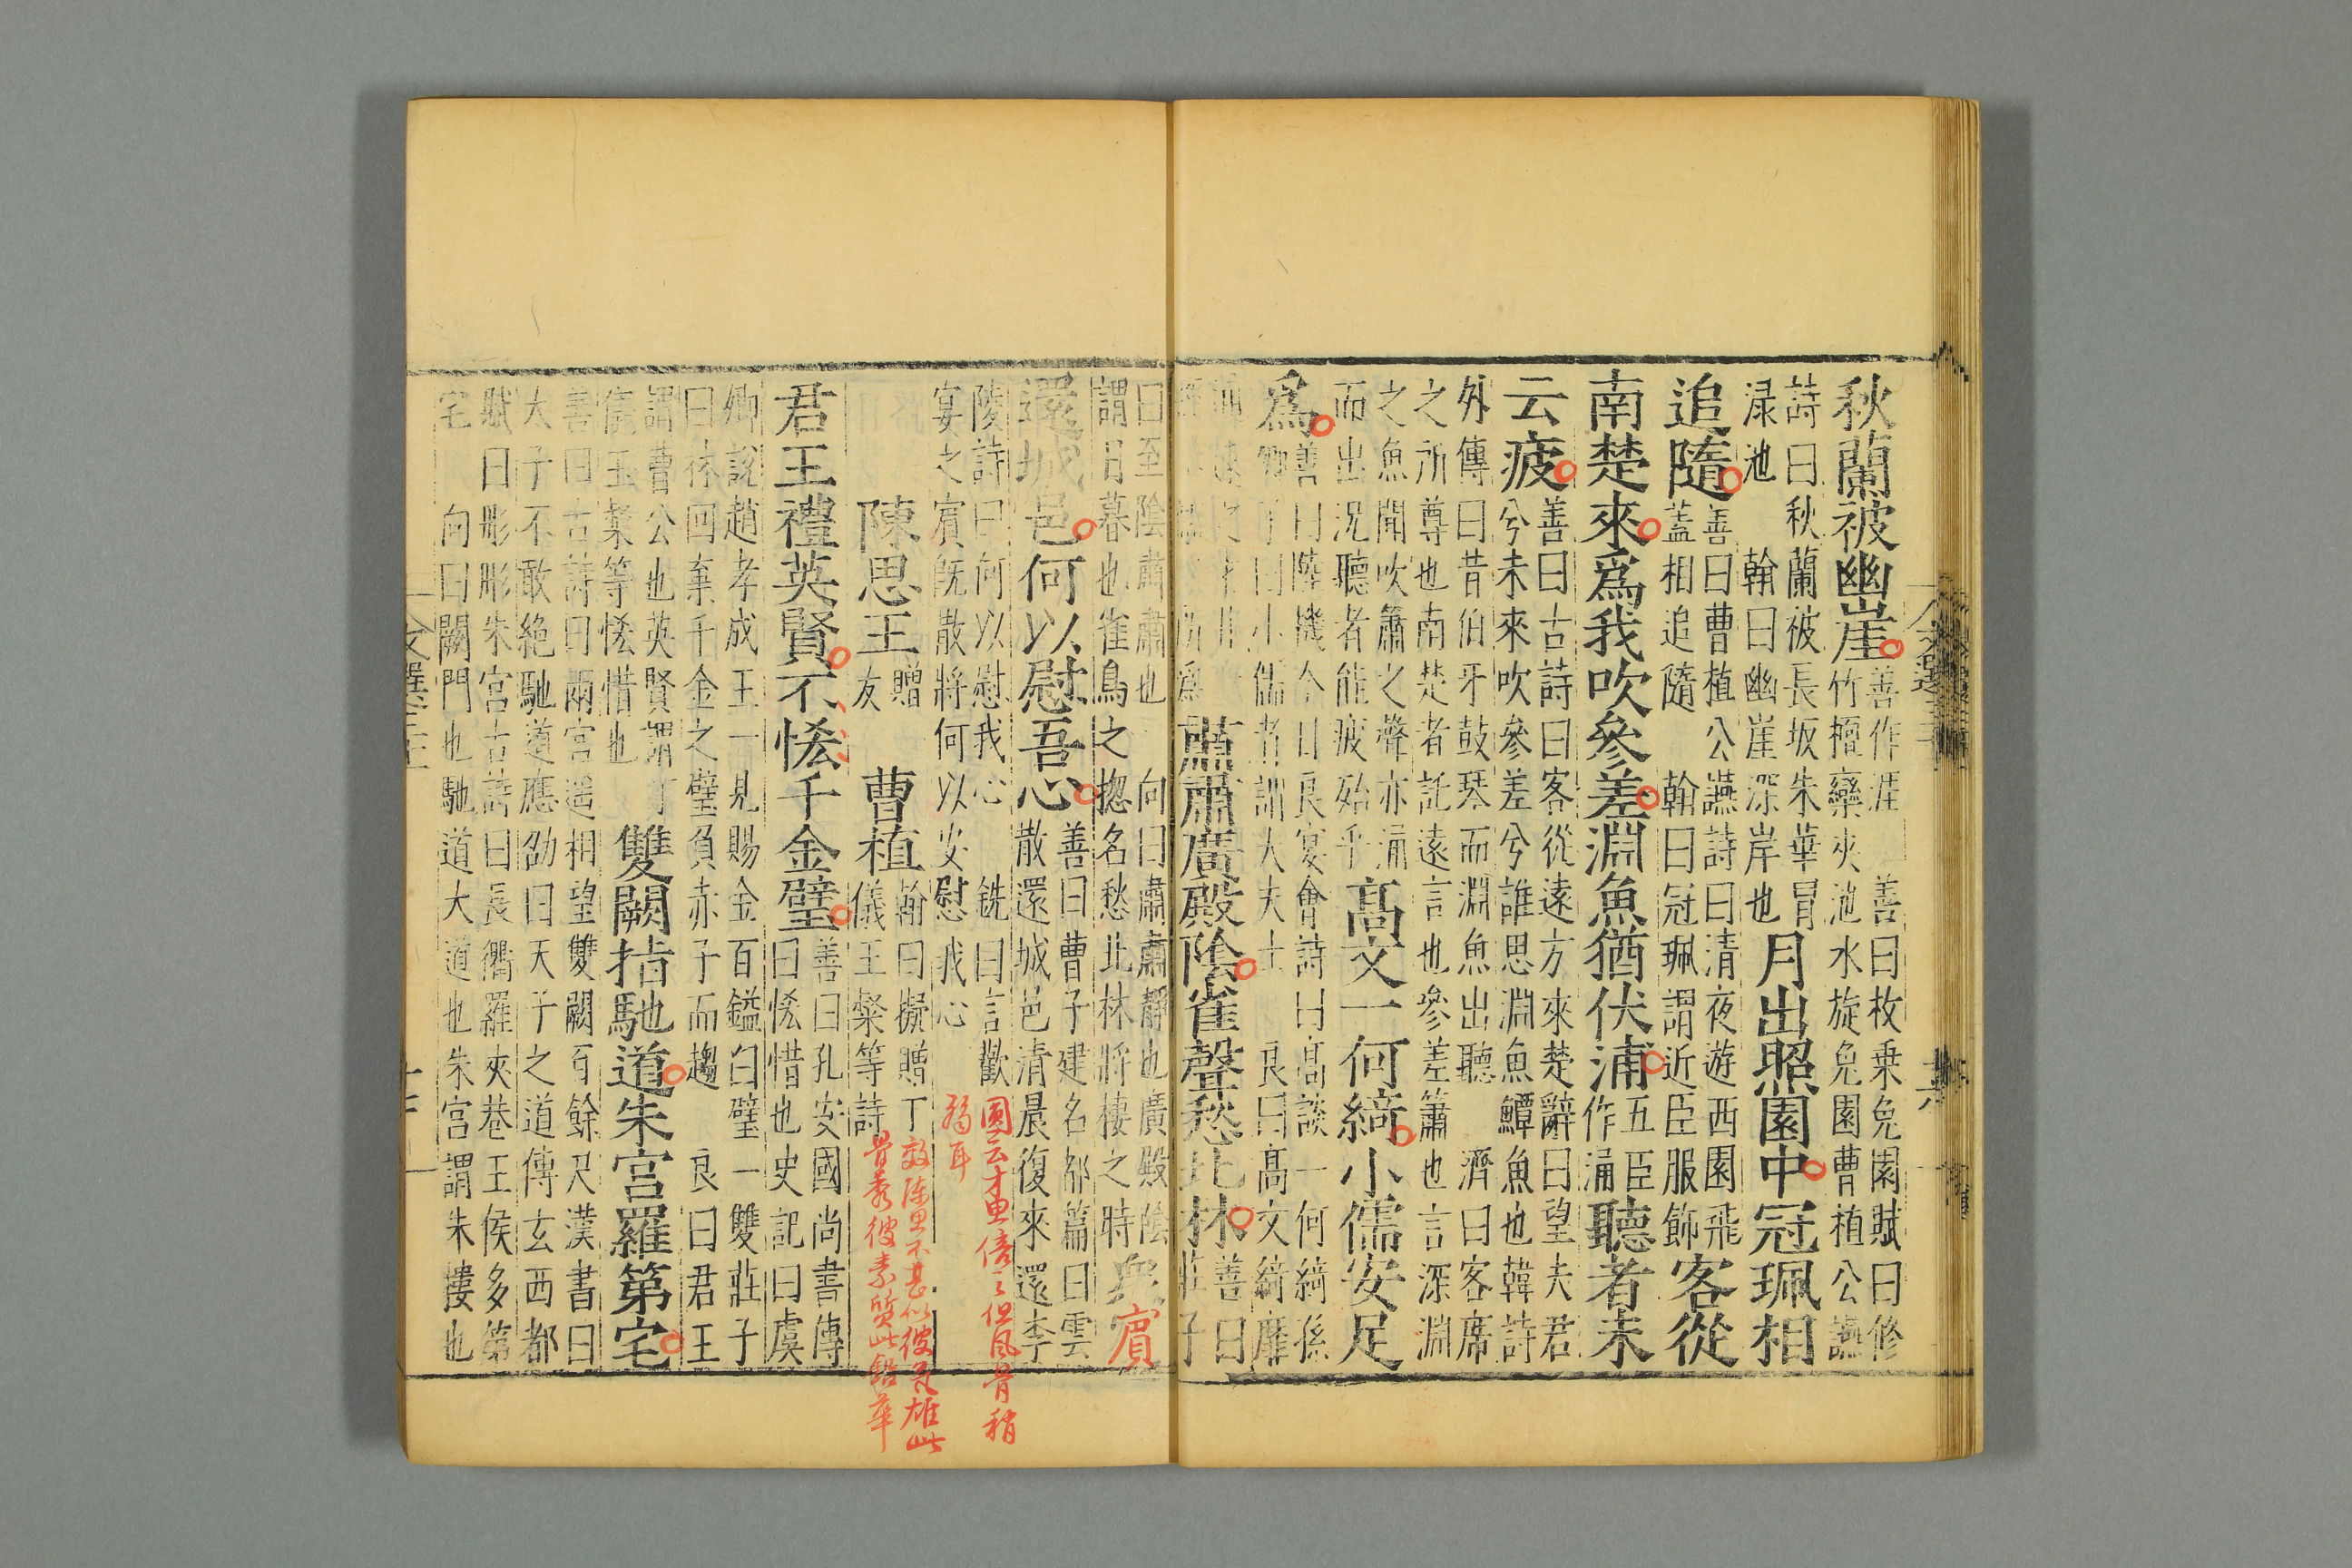 秋蘭被幽崖善作涯善曰枚乗兔園賦曰修
竹檀欒夾池水旋兔園曹植公讌
詩曰秋蘭被長坂朱華冒
渌池翰曰幽崖深岸也月出照園中冠珮相
追隨善曰曹植公讌詩曰清夜遊西園飛
蓋相追隨翰曰冠珮謂近臣服飾客從
南楚來爲我吹參差淵魚猶伏浦五臣作涌聽者未
云疲善曰古詩曰客從遠方來楚辭曰望夫君
兮未來吹參差兮誰思淵魚鱏魚也韓詩
外傳曰昔伯牙鼓琴而淵魚出聽濟曰客席
之所尊也南楚者託遠言也參差簫也言深淵
之魚聞吹簫之聲亦涌
而出況聽者能疲殆乎高文一何綺小儒安足
爲善曰陸機今日良宴會詩曰高談一何綺孫
卿子曰小儒者諸大夫士良曰高文綺靡
蕭肅廣殿陰雀聲愁北林善曰
莊子
曰至陰肅肅也向曰肅肅靜也廣殿陰
謂日暮也雀鳥之揔名愁北林將棲之時衆賓
還城邑何以慰吾心善曰曹子建名都篇曰雲
散還城邑清晨復來還李
陵詩曰何以慰我心銑曰言歡
宴之賓既散將何以安慰我心
圓云才思倍之但風骨稍
弱耳
陳思王贈友曹植翰曰擬贈丁
儀王粲等詩
效陳思不甚似彼氣雄此
骨秀彼素質此鉛華
君王禮英賢不恡千金璧善曰孔安國尚書傳
曰恡惜也史記曰虞
卿説趙孝成王一見賜金百鎰白璧一雙莊子
曰林回棄千金之璧負赤子而趨良曰君王
謂曹公也英賢謂丁
儀王粲等恡惜也雙闕指馳道朱宮羅第宅
善曰古詩曰兩宮遥相望雙闕百餘尺漢書曰
太子不敢絶馳道應劭曰天子之道傳玄西都
賦曰彤彤朱宮古詩曰長衢羅夾巷王侯多第
宅向曰闕門也馳道大道也朱宮謂朱樓也